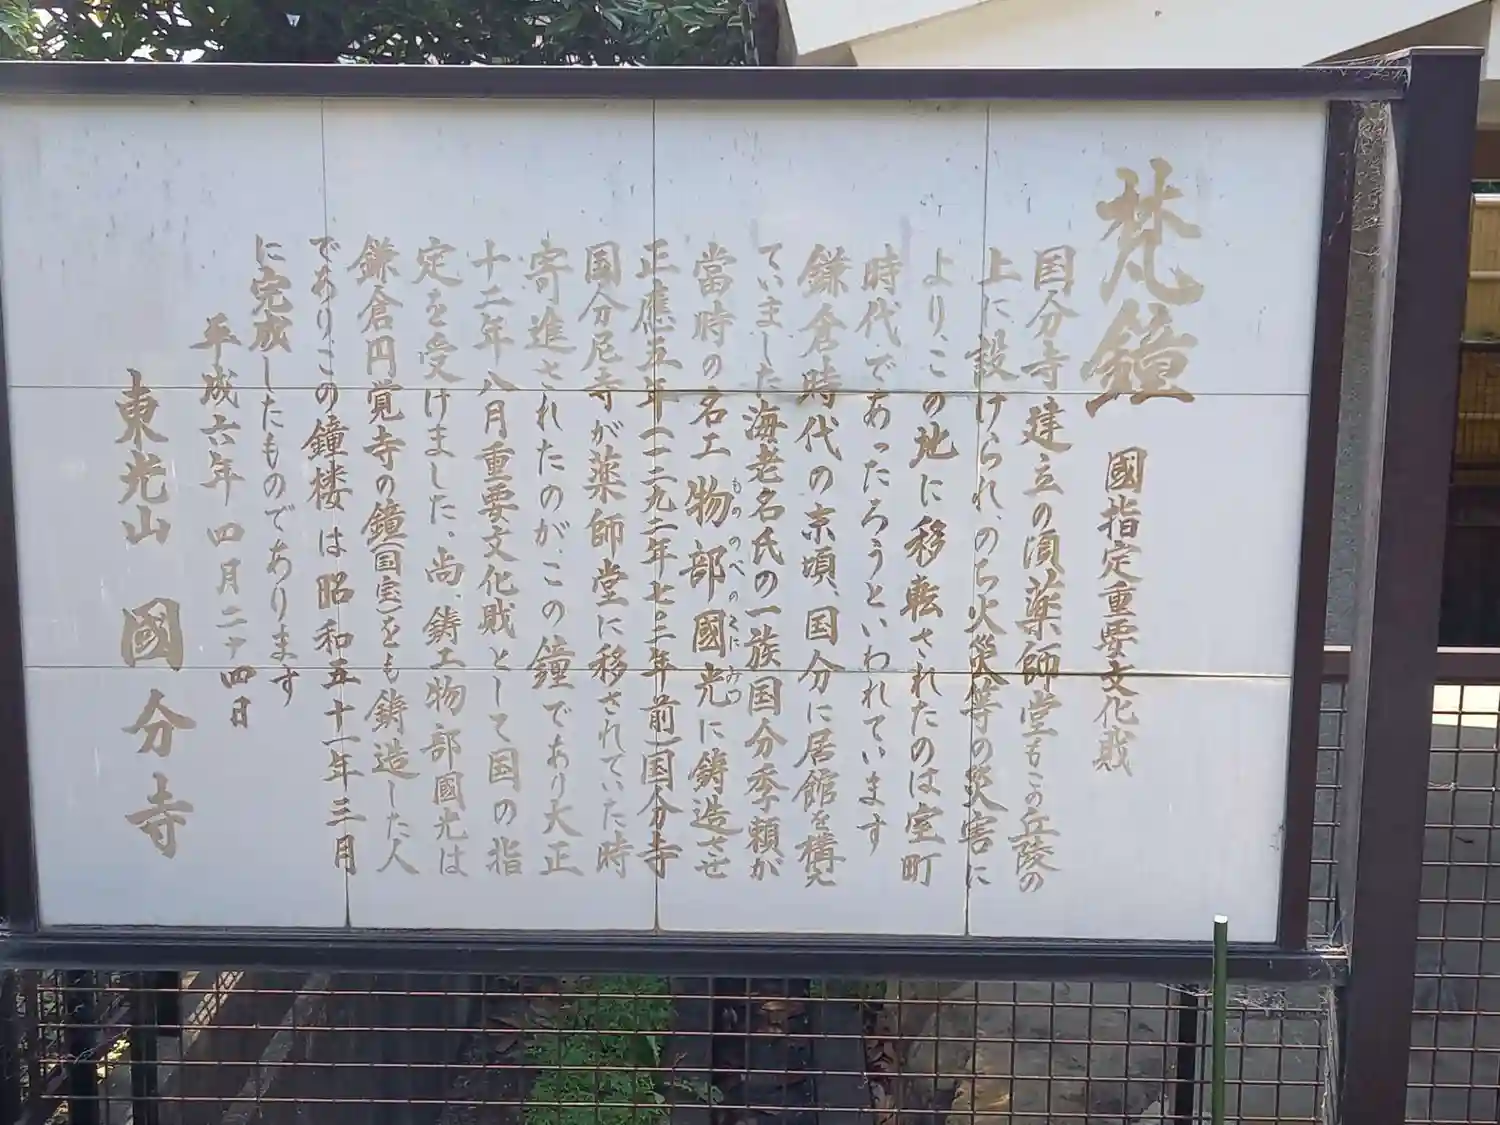 梵鐘 國指定重要文化財
国分寺建立の須薬師堂もこの丘陵の
上に設けられ、のち火災等の災害に
より、この地に移転されたのは室町
時代であったろうといわれています
鎌倉時代の末頃、国分に居館を構え
ていました海老名氏の一族国分季頼が
當時の名工物部國光に鋳造させ
もののべのくにみつ
正應五年(一二九二年七〇二年前)国分寺
国分尼寺が薬師堂に移されていた時
寄進されたのが、この鐘であり大正
十二年八月重要文化財として国の指
定を受けました、尚、鋳工物部國光は
鎌倉円覚寺の鐘(国宝)をも鋳造した人
であり、この鐘楼は昭和五十一年三月
に完成したものであります
平成六年四月二十四日
東光山 國分寺